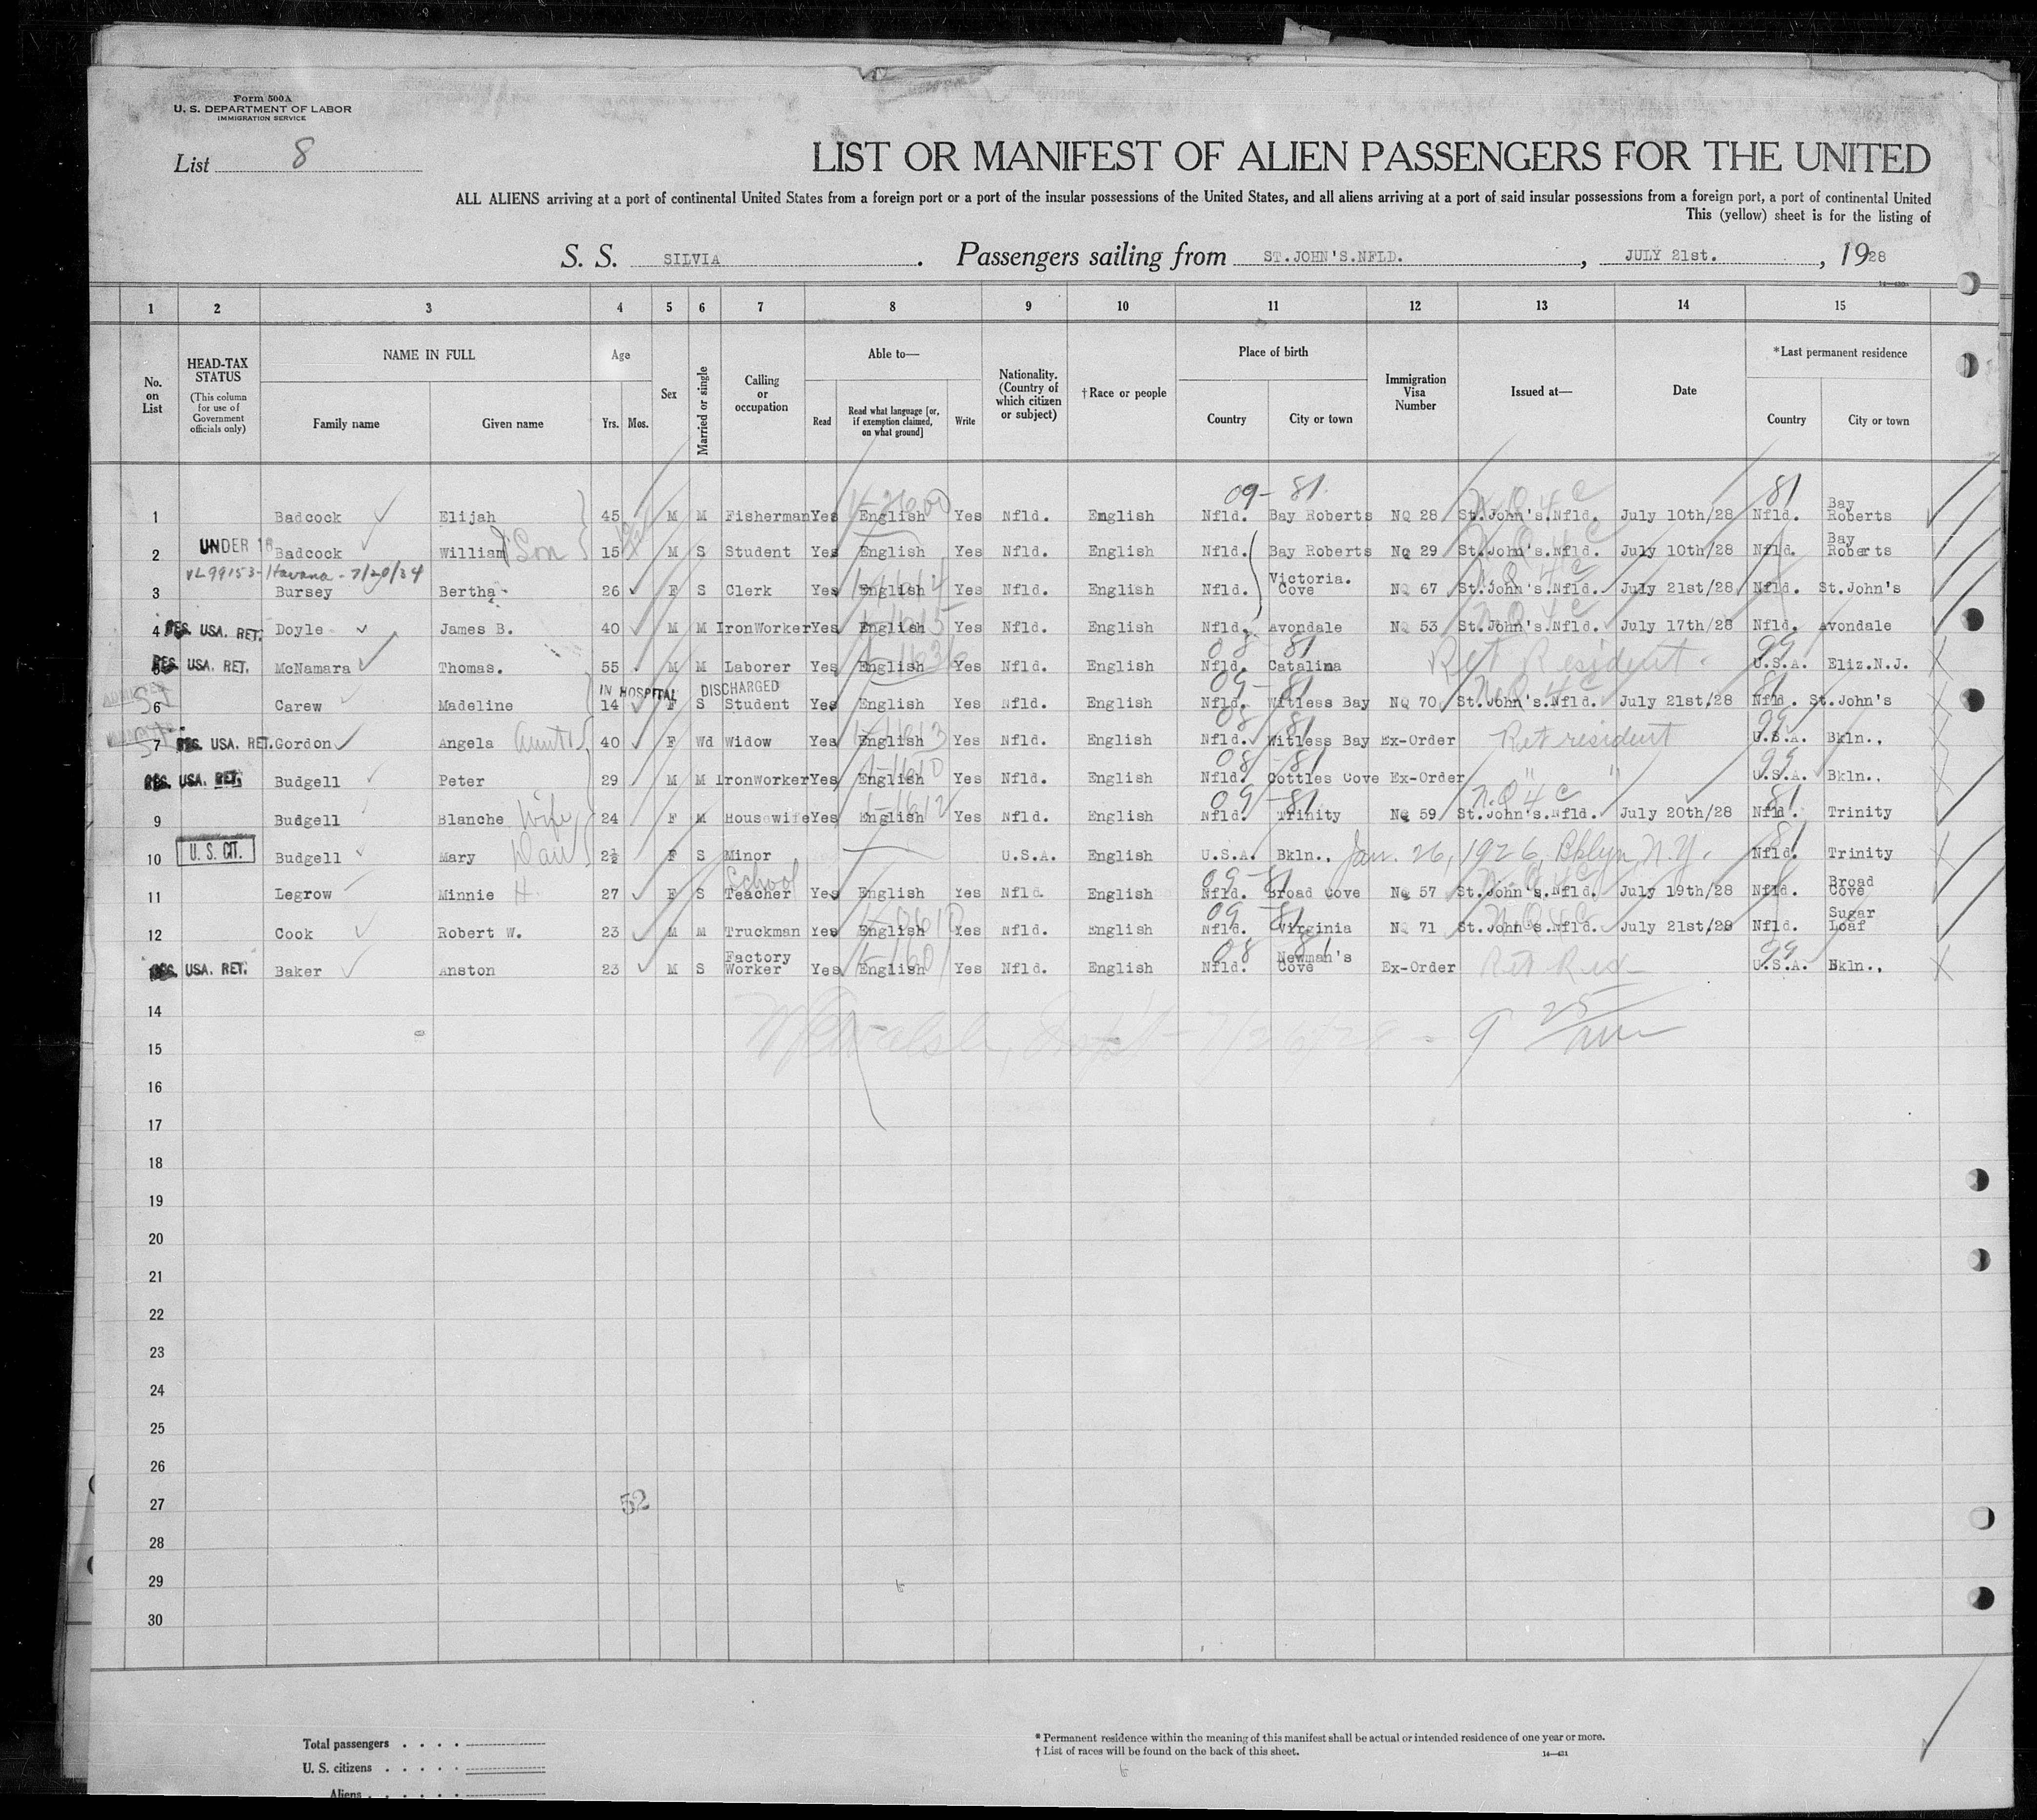 Form 500A
U. S. DEPARTMENT OF LABOR
IMMIGRATION SERVICE
List 8
LIST OR MANIFEST OF ALIEN PASSENGERS FOR THE UNITED
ALL ALIENS arriving at a port of continental United States from a foreign port or a port of the insular possessions of the United States, and all aliens arriving at a port of said insular possessions from a foreign port, a port of continental United
This (yellow) sheet is for the listing of
S. S. SILVIA . Passengers sailing from ST.JOHN'S.NFLD. , JULY 21st. , 1928
1 2 3 4 5 6 7 8 9 10 11 12 13 14 15
No. on List
HEAD-TAX STATUS
(This column for use of Government officials only)
NAME IN FULL
Family name Given name
Age
Yrs. Mos.
Sex
Married or single
Calling or occupation
Able to—
Read Read what language [or, if exemption claimed, on what ground] Write
Nationality. (Country of which citizen or subject)
†Race or people
Place of birth
Country City or town
Immigration Visa Number
Issued at—
Date
*Last permanent residence
Country City or town
09- 81 N.Q 4 C 81
1 Badcock Elijah 45 M M Fisherman Yes English Yes Nfld. English Nfld. Bay Roberts NQ 28 St.John's.Nfld. July 10th/28 Nfld. Bay Roberts
2 UNDER 16 Badcock William Son 15 M S Student Yes English Yes Nfld. English Nfld. Bay Roberts NQ 29 St.John's.Nfld. July 10th/28 Nfld. Bay Roberts
VL99153-Havana - 7/20/34
3 Bursey Bertha 26 F S Clerk Yes English Yes Nfld. English Nfld. Victoria. Cove NQ 67 St.John's.Nfld. July 21st/28 Nfld. St.John's
4 RES. USA. RET. Doyle James B. 40 M M IronWorker Yes English Yes Nfld. English Nfld. Avondale NQ 53 St.John's.Nfld. July 17th/28 Nfld. Avondale
08 - 81 99
5 RES. USA. RET. McNamara Thomas. 55 M M Laborer Yes English Yes Nfld. English Nfld. Catalina Ret Resident. U.S.A. Eliz.N.J.
IN HOSPITAL DISCHARGED 09 - 81 N.Q 4 C 81
6 Carew Madeline 14 F S Student Yes English Yes Nfld. English Nfld. Witless Bay NQ 70 St.John's.Nfld. July 21st/28 Nfld. St.John's
08 81 99
7 RES. USA. RET. Gordon Angela Aunt 40 F Wd Widow Yes English Yes Nfld. English Nfld. Witless Bay Ex-Order Ret resident U.S.A. Bkln.,
08 - 81 99
RES. USA. RET. Budgell Peter 29 M M IronWorker Yes English Yes Nfld. English Nfld. Cottles Cove Ex-Order " " U.S.A. Bkln.,
09 - 81 N.Q 4 C 81
9 Budgell Blanche Wife 24 F M Housewife Yes English Yes Nfld. English Nfld. Trinity NQ 59 St.John's.Nfld. July 20th/28 Nfld. Trinity
10 U. S. CIT. Budgell Mary Dau 2½ F S Minor U.S.A. English U.S.A. Bkln., Jan. 26, 1926, Bklyn, N.Y. Nfld. Trinity
School 09 - 81
11 Legrow Minnie H 27 F S Teacher Yes English Yes Nfld. English Nfld. Broad Cove NQ 57 St.John's.Nfld. July 19th/28 Nfld. Broad Cove
09 - 81 N.Q 4 C
12 Cook Robert W. 23 M M Truckman Yes English Yes Nfld. English Nfld. Virginia NQ 71 St.John's.Nfld. July 21st/28 Nfld. Sugar Loaf
08 81 99
RES. USA. RET. Baker Anston 23 M S Factory Worker Yes English Yes Nfld. English Nfld. Newman's Cove Ex-Order Ret Res U.S.A. Bkln.,
14
15 7/26/28 - 9 25
16
17
18
19
20
21
22
23
24
25
26
27 52
28
29
30
Total passengers . . . .
U. S. citizens . . . . .
Aliens . . . . . .
* Permanent residence within the meaning of this manifest shall be actual or intended residence of one year or more.
† List of races will be found on the back of this sheet.
14—431